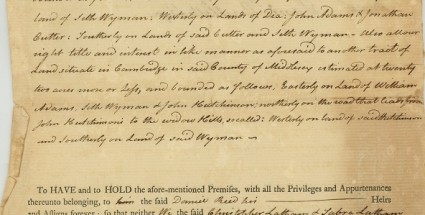 Land of Seth Wyman: Westerly on Lands of Dea: John Adams & Jonathan
Cutter: Southerly on Lands of said Cutter and Seth Wyman - Also all our
right title and interest in like manner as aforesaid to another tract of
Land situate in Cambridge in said County of Middlesex estimated at twenty
two acres more or Less, and bounded as follows. Easterly on Land of William
Adams, Seth Wyman & John Hutchinson; northerly on the road that leads from
John Hutchinsons to the so called: Westerly on land of said Hutchinson
and Southerly on Land of said Wyman ~
To HAVE and to HOLD the afore-mentioned Premises, with all the Privileges and Appurtenances
thereunto belonging, to him the said Daniel Reed his Heirs
and Assigns forever: so that neither We the said Christopher Latham & Sabra Latham